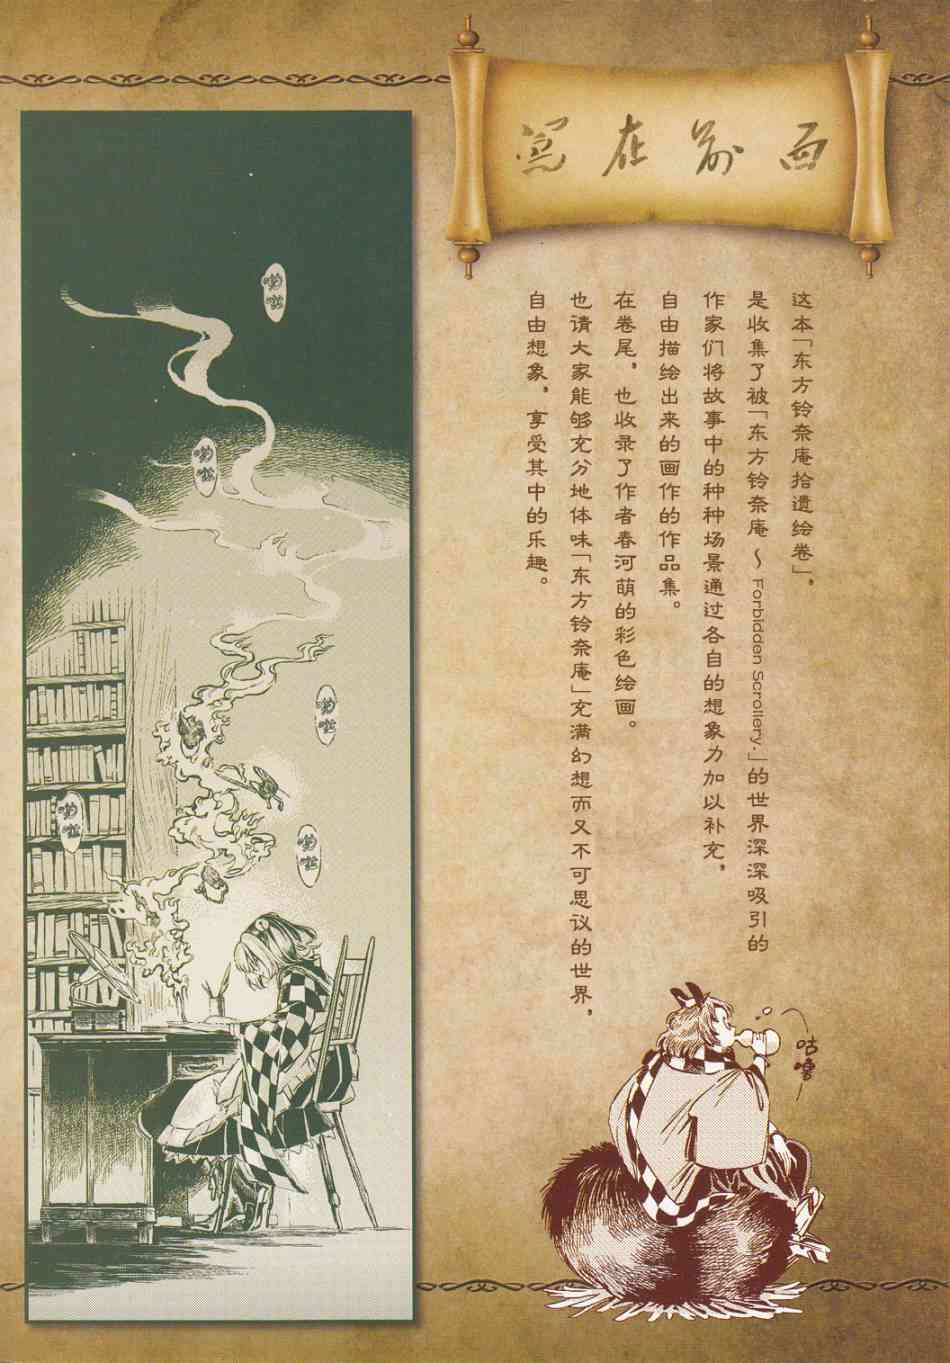 写在前面
这本「东方铃奈庵拾遗绘卷」，
是收集了被「东方铃奈庵～Forbidden Scrollery.」的世界深深吸引的
作家们将故事中的种种场景通过各自的想象力加以补充，
自由描绘出来的画作的作品集。
在卷尾，也收录了作者春河萌的彩色绘画。
也请大家能够充分地体味「东方铃奈庵」充满幻想而又不可思议的世界，
自由想象，享受其中的乐趣。
咕噜